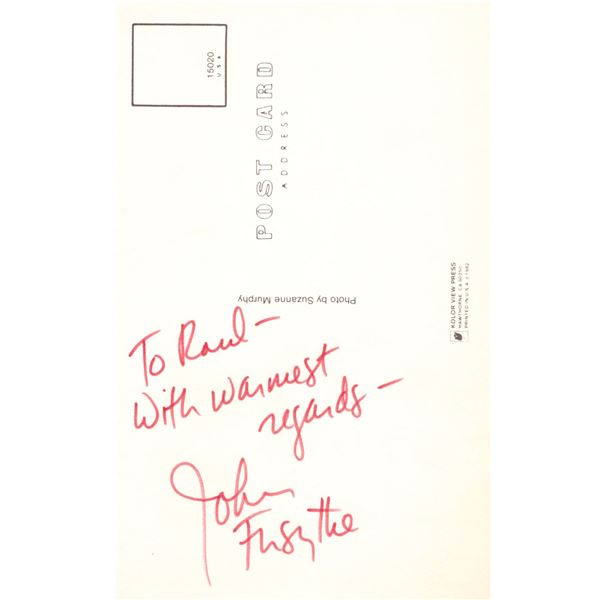 15020
USA
POST CARD
ADDRESS
Photo by Suzanne Murphy
KOLOR VIEW PRESS
HAWTHORNE, CA 90250
PRINTED IN U.S.A. ©1982
To Raul -
With warmest
regards -
John
Forsythe